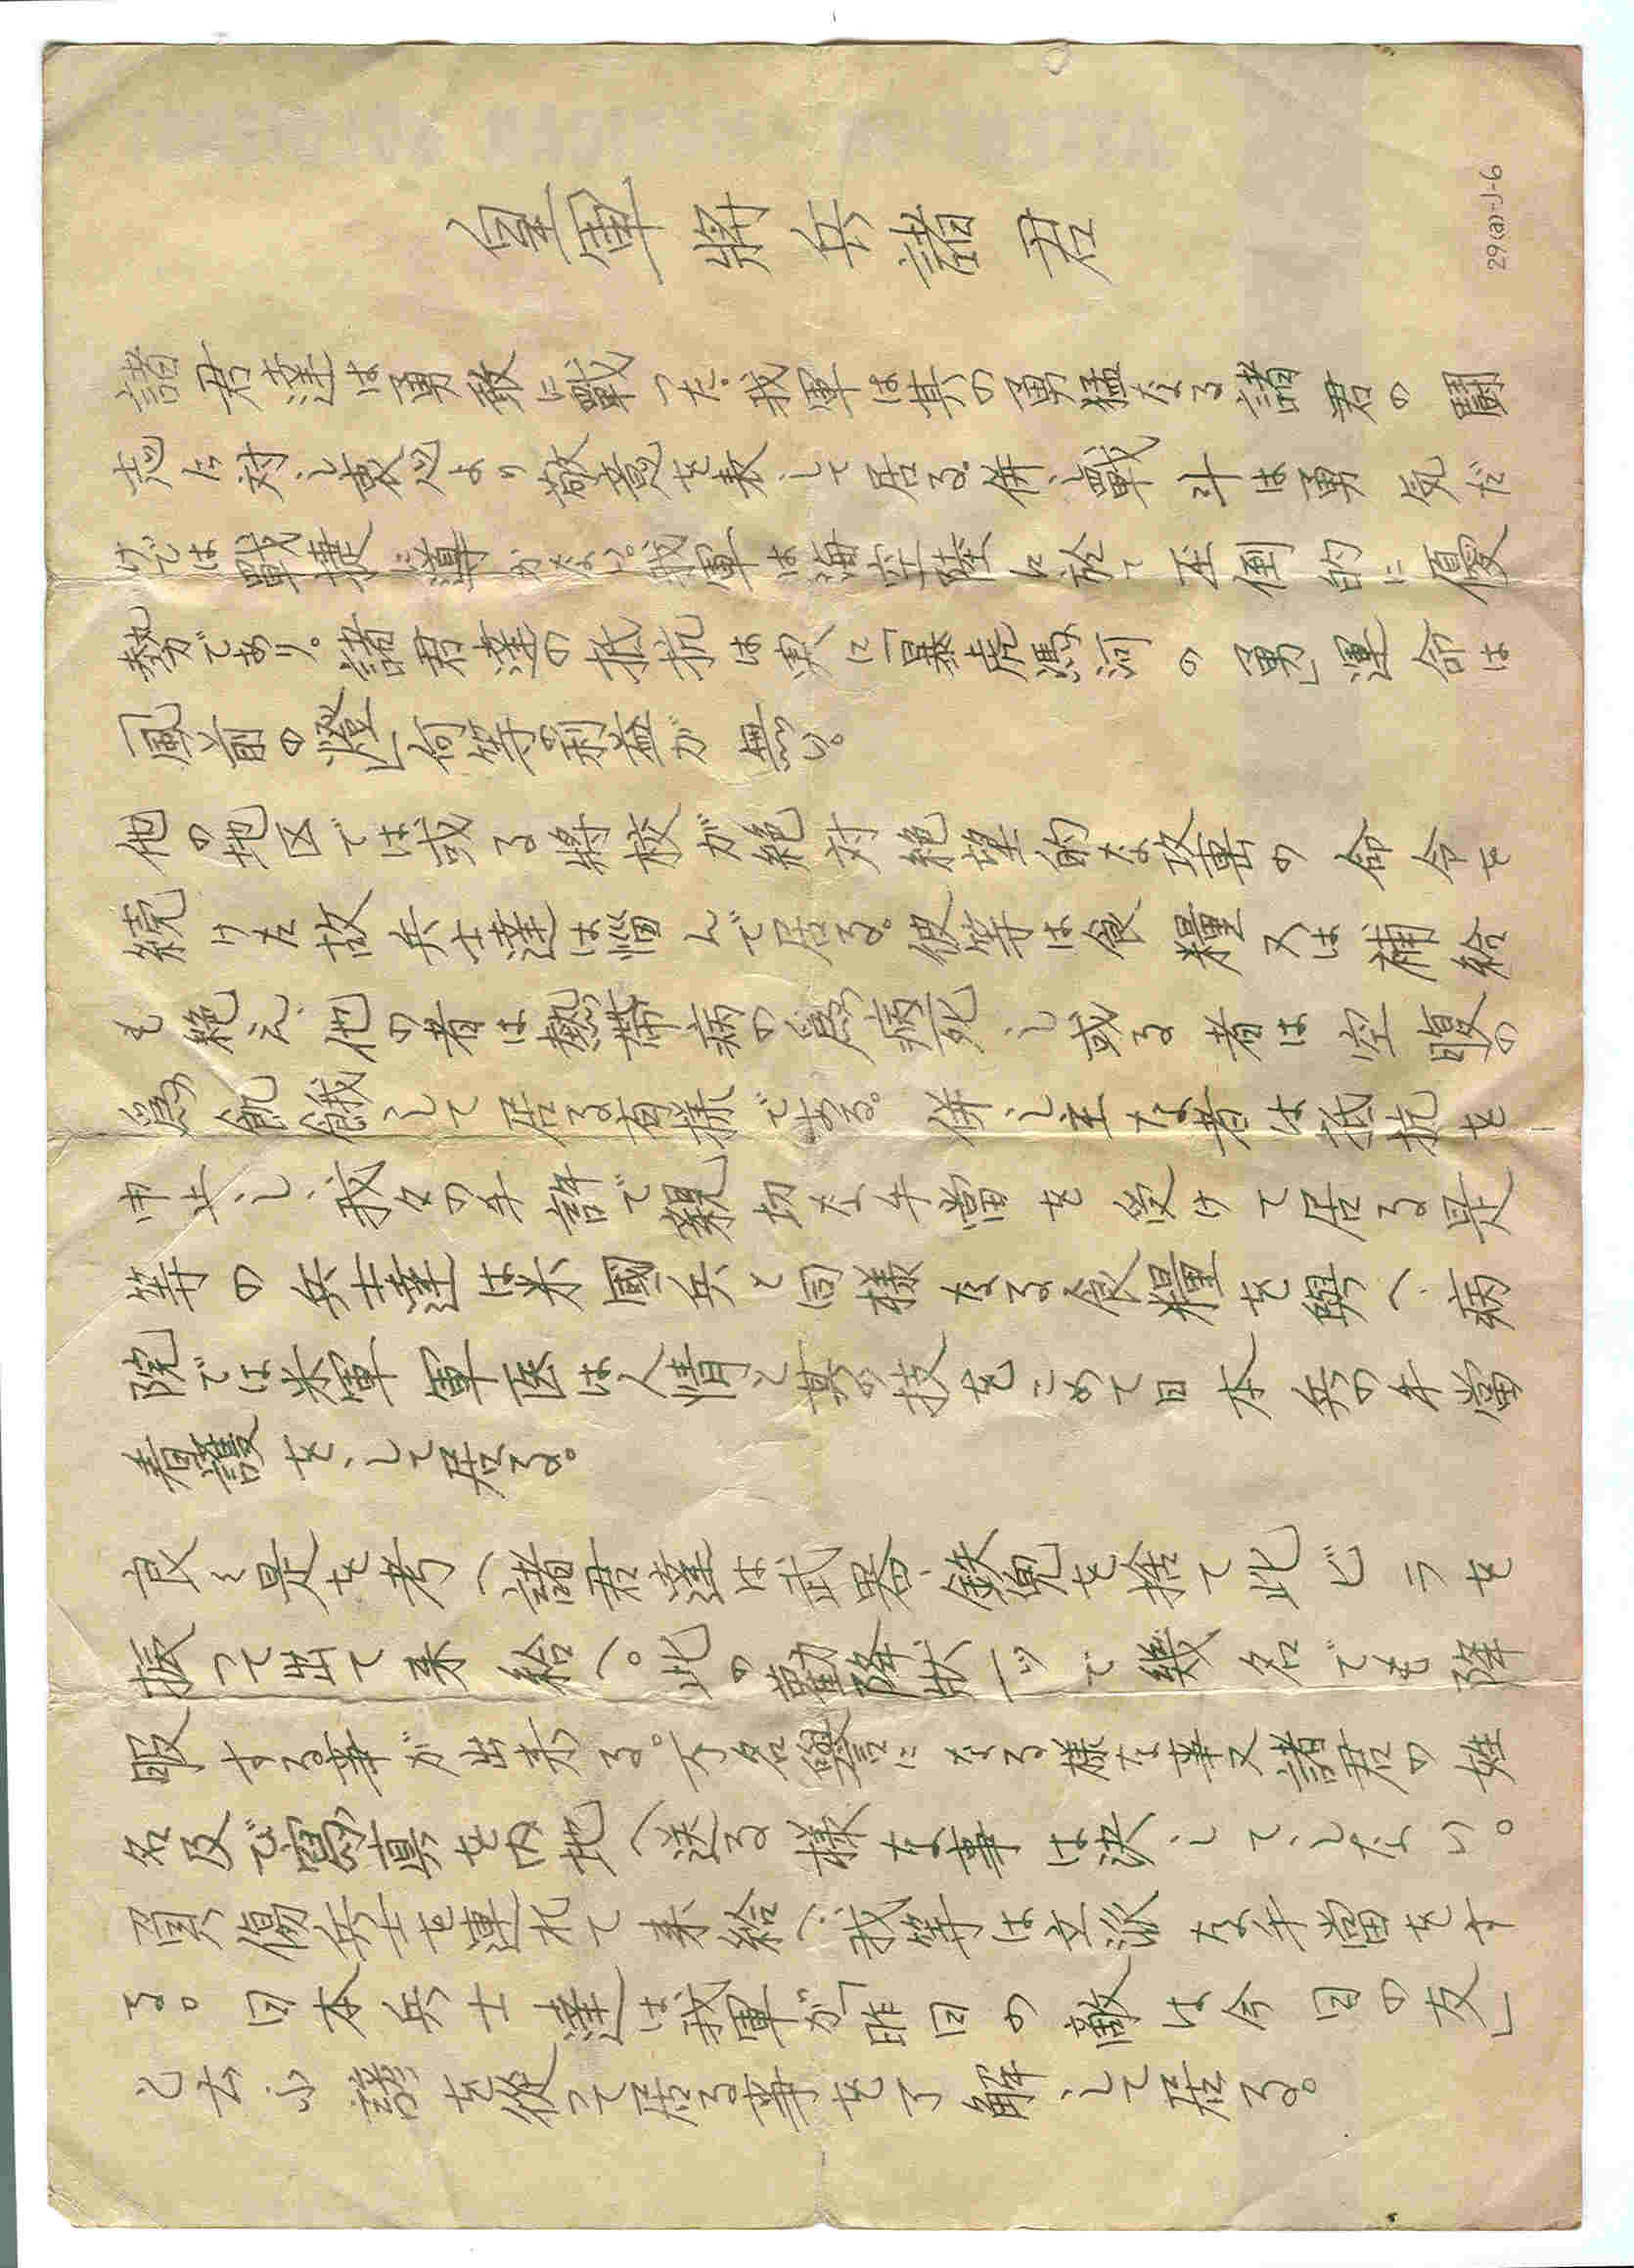 皇軍將兵諸君
諸君達は勇敢に戰つた。我軍は其の勇猛なる諸君の闘
志に対し衷心より敬意を表して居る。併し戰斗は勇気だ
けでは戰捷に導かない。我軍は海空陸に於て圧倒的に優
勢であり。諸君達の抵抗は実に「暴虎馮河の勇」運命は
「風前の燈」何等の利益が無い。
他の地区では或る將校が絶対絶望的な攻撃の命令を
続けた故兵士達は悩んで居る。彼等は食糧又は補給
も絶え、他の者は熱帯病の為病死し或る者は空腹の
為飢餓して居る有様である。併し主な者は抵抗を
中止し、我々の手許で親切な手當を受けて居る是
等の兵士達は米國兵と同様なる食糧を與へ、病
院では米軍軍医は人情と其の技をこめて日本兵の手當
看護をして居る。
良く是を考へ諸君達は武器、鉄兜を捨て此ビラを
振つて出て来給へ。此の勸降状一ツで幾名でも降
服する事が出来る。不名譽になる様な事又諸君の姓
名及び寫真を内地へ送る様な事は決してしない。
負傷兵士を連れて来給へ、我等は立派な手當をす
る。日本兵士達は我軍が「昨日の敵は今日の友」
と云ふ諺を從つて居る事を了解して居る。
29(a)-J-6